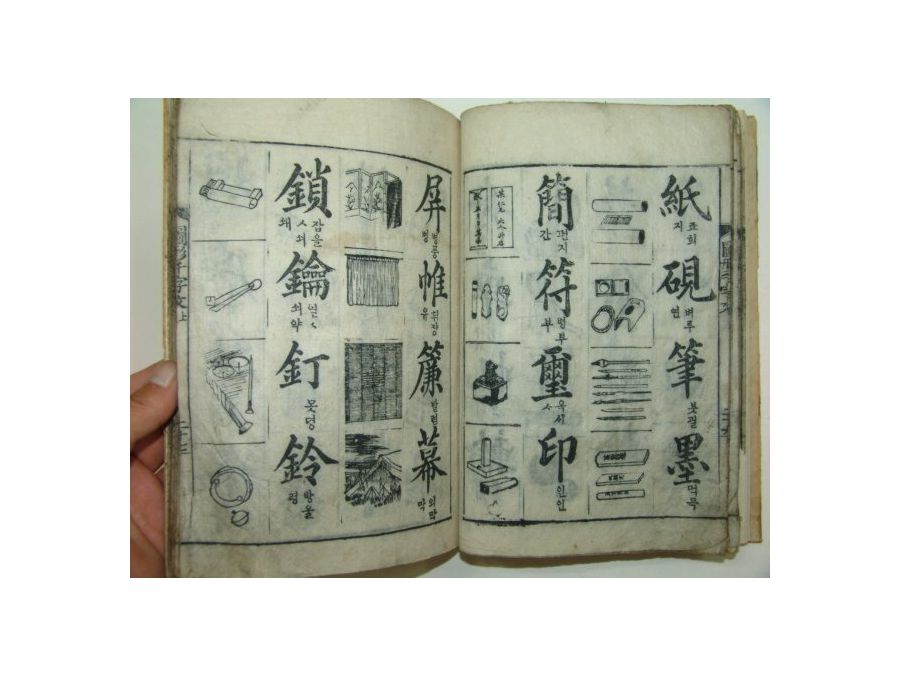 紙 죠희 지
硯 벼루 연
筆 붓필
墨 먹믁
簡 편지 간
符 병부 부
璽 옥새
印 인인
屛 병풍 병
帷 휘쟝 유
簾 발렴
幕 의막 막
鎖 잠을ㅅ쇠 쇄
鑰 열쇠 약
釘 못뎡
鈴 방울 령
圖形千字文 上